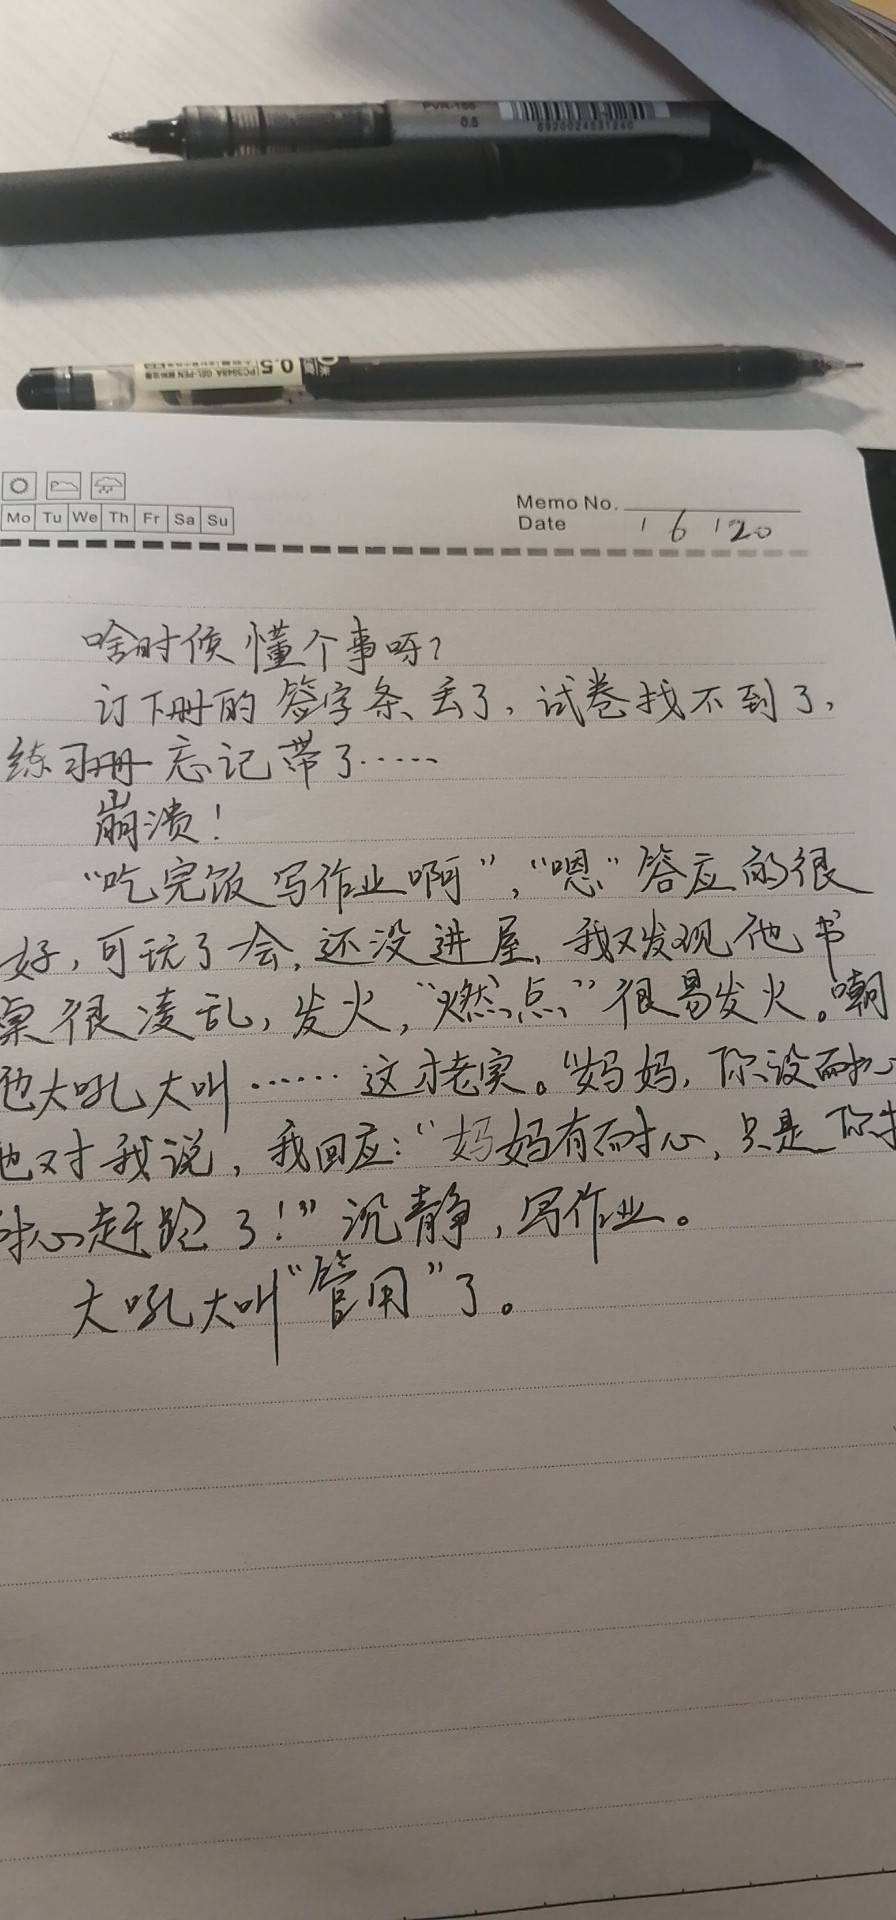 PVR-155
0.5
6920024031240
0.5 PC3948A GEL-PEN
Mo Tu We Th Fr Sa Su
Memo No.
Date 1 6 '20
啥时候懂个事呀?
订下册的签字条丢了,试卷找不到了,
练习册忘记带了……
崩溃!
“吃完饭写作业啊”,“嗯”答应的很
好,可玩了会,还没进屋,我又发现他书
桌很凌乱,发火,“燃点”很易发火。嘲
他大吼大叫……这才老实。“妈妈,你没耐心
他对我说,我回应:“妈妈有耐心,只是你
耐心赶跑了!”沉静,写作业。
大吼大叫“管用”了。